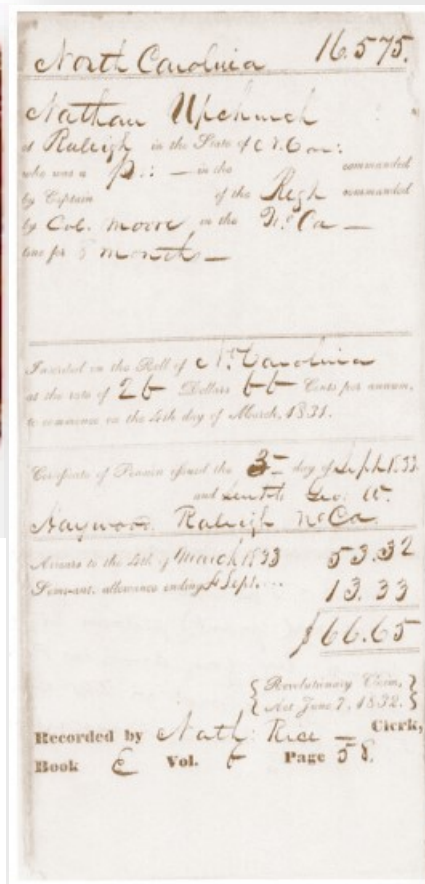 North Carolina 16.575.
Nathan Upchurch
of Raleigh in the State of N. Car:
who was a p.: in the commanded
by Captain of the Regt commanded
by Col. Moore in the No Ca
line for 8 months
Inscribed on the Roll of No Carolina
at the rate of 26 Dollars 66 Cents per annum,
to commence on the 4th day of March, 1831.
Certificate of Pension issued the 3 day of Sept 1833
and sent to Geo. W.
Haywood Raleigh No Ca.
Arrears to the 4th of March 1833 53.32
Semi-ant. allowance ending 4 Sept. 13.33
$66.65
{ Revolutionary Claim, }
{ Act June 7, 1832. }
Recorded by Nath: Rice Clerk,
Book E Vol. 6 Page 58.